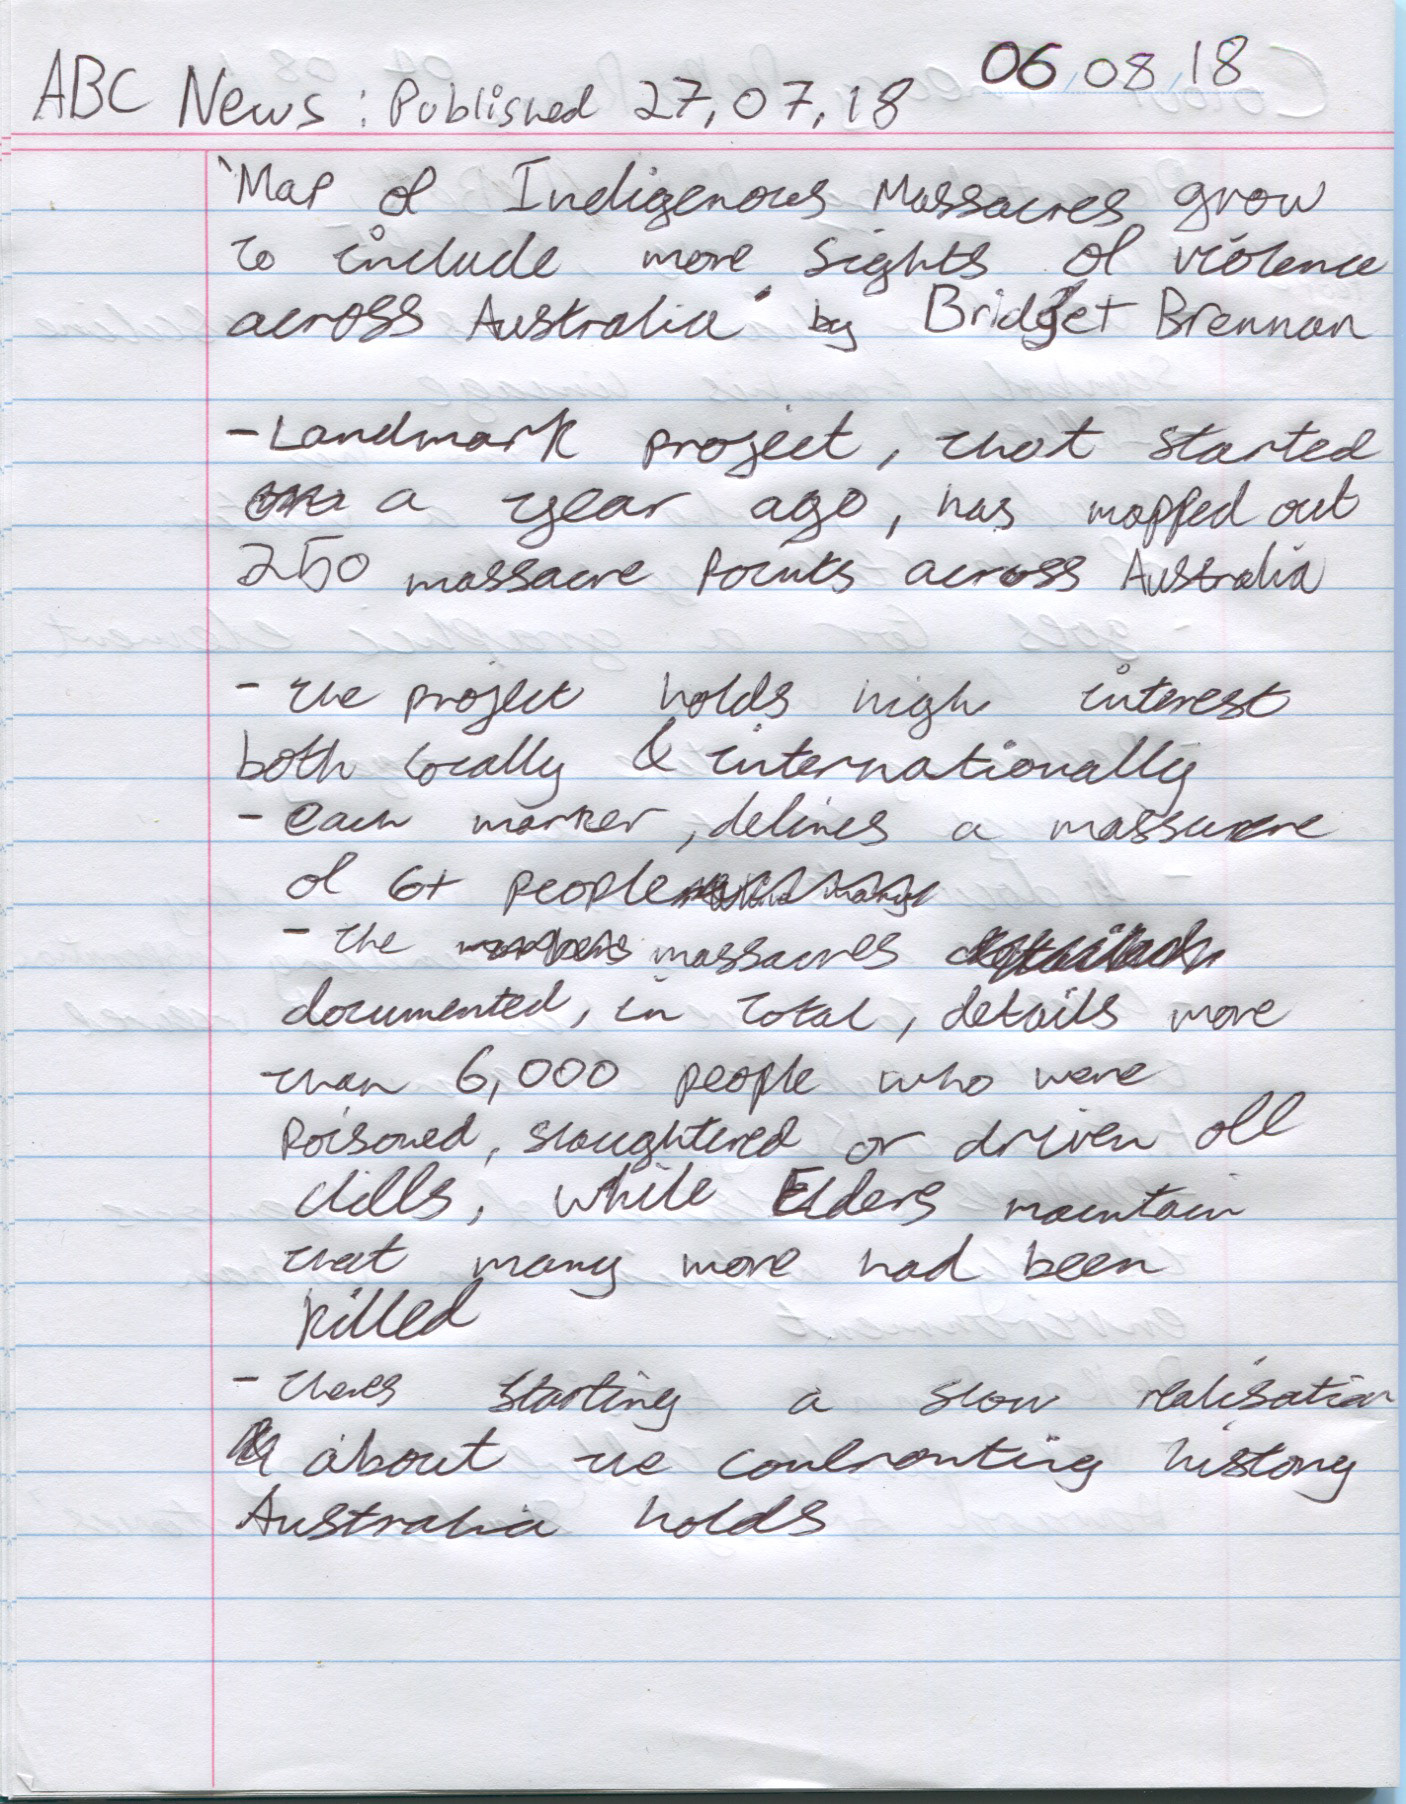 06/08/18
ABC News: Published 27,07,18
'Map of Indigenous Massacres grow
to include more sights of violence
across Australia' by Bridget Brennan
- Landmark project, that started
a year ago, has mapped out
250 massacre points across Australia
- the project holds high interest
both locally & internationally
- each marker, defines a massacre
of 6+ people
- the massacres
documented, in total, details more
than 6,000 people who were
poisoned, slaughtered or driven off
cliffs, while Elders maintain
that many more had been
killed
- theres starting a slow realisation
about the confronting history
Australia holds